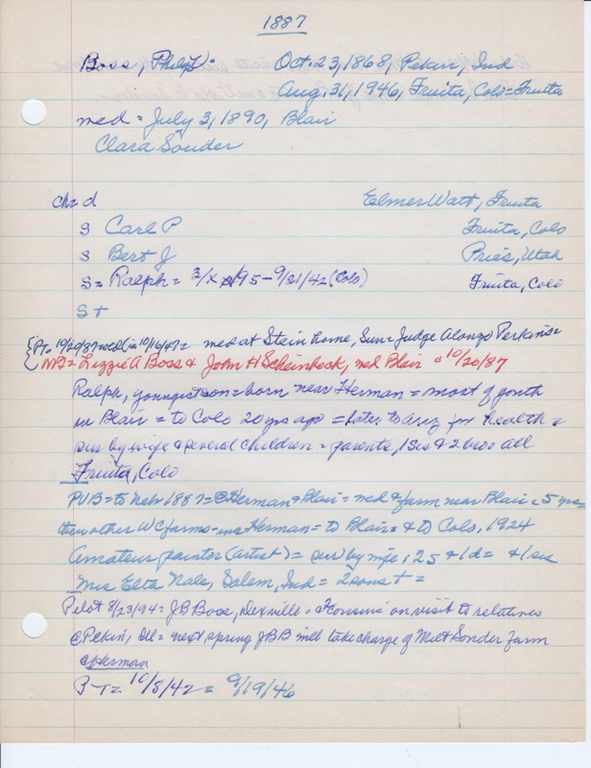 1887
Boss, Philip V= Oct. 23, 1868, Pekin, Ind
Aug. 31, 1946, Fruita, Colo=Fruita
med = July 3, 1890, Blair
Clara Souder
ch= d Elmer Watt, Fruita
s Carl P Fruita, Colo
s Bert J Price, Utah
s = Ralph = 3/x/95 - 9/21/42 (Colo) Fruita, Colo
s +
med at Stein home, Sun= Judge Alonzo Perkins=
NB= Lizzie A Boss & John H Scheinbeck, med Blair 10/20/87
Ralph, youngest son = born near Herman = most of youth
in Blair = to Colo 20 yrs ago = later to Ariz for health =
sur by wife & several children = parents, 1 sis & 2 bros all
Fruita, Colo
PVB= to Nebr 1887= @Herman & Blair = med & farm near Blair 5 yrs=
then other WC farms= Herman= to Blair= & to Colo, 1924
Amateur painter (artist)= sur by wife, 2 s & 1 d= & 1 sis
Mrs Etta Nale, Salem, Ind = 2 sons + =
Pilot 8/23/94= J B Boss, on visit to relatives
@Pekin, = next spring JBB will take charge of Milt Sonder farm
@Herman
P-T= 10/8/42 = 9/19/46